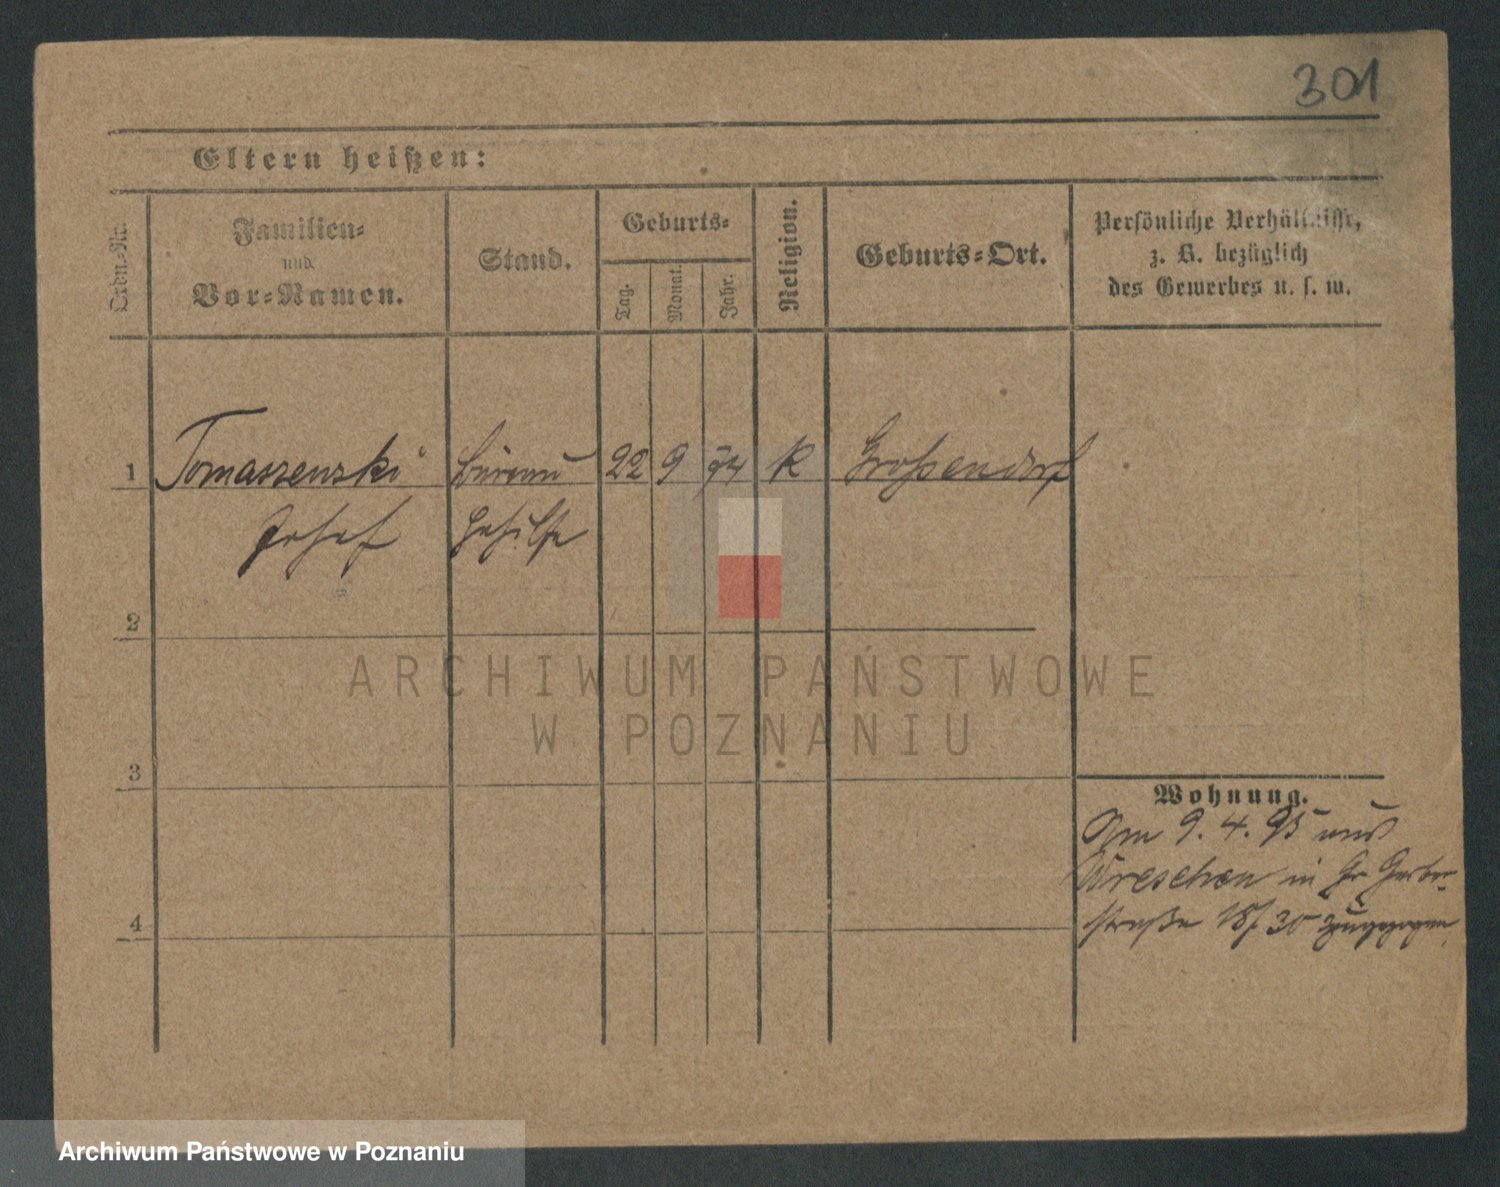 301
Eltern heißen:
Ordn.-Nr.
Familien-
und
Vor-Namen.
Stand.
Geburts-
Tag.
Monat.
Jahr.
Religion.
Geburts-Ort.
Persönliche Verhältnisse,
z. B. bezüglich
des Gewerbes u. s. w.
1 Tomaszewski Büreau 22 9 74 K Großendorf
Josef Gehilfe
2
ARCHIWUM PAŃSTWOWE
W POZNANIU
3
Wohnung.
Am 9. 4. 95 aus
Wreschen in Gr Gerber-
straße 18/ 30 zugezogen
4
Archiwum Państwowe w Poznaniu